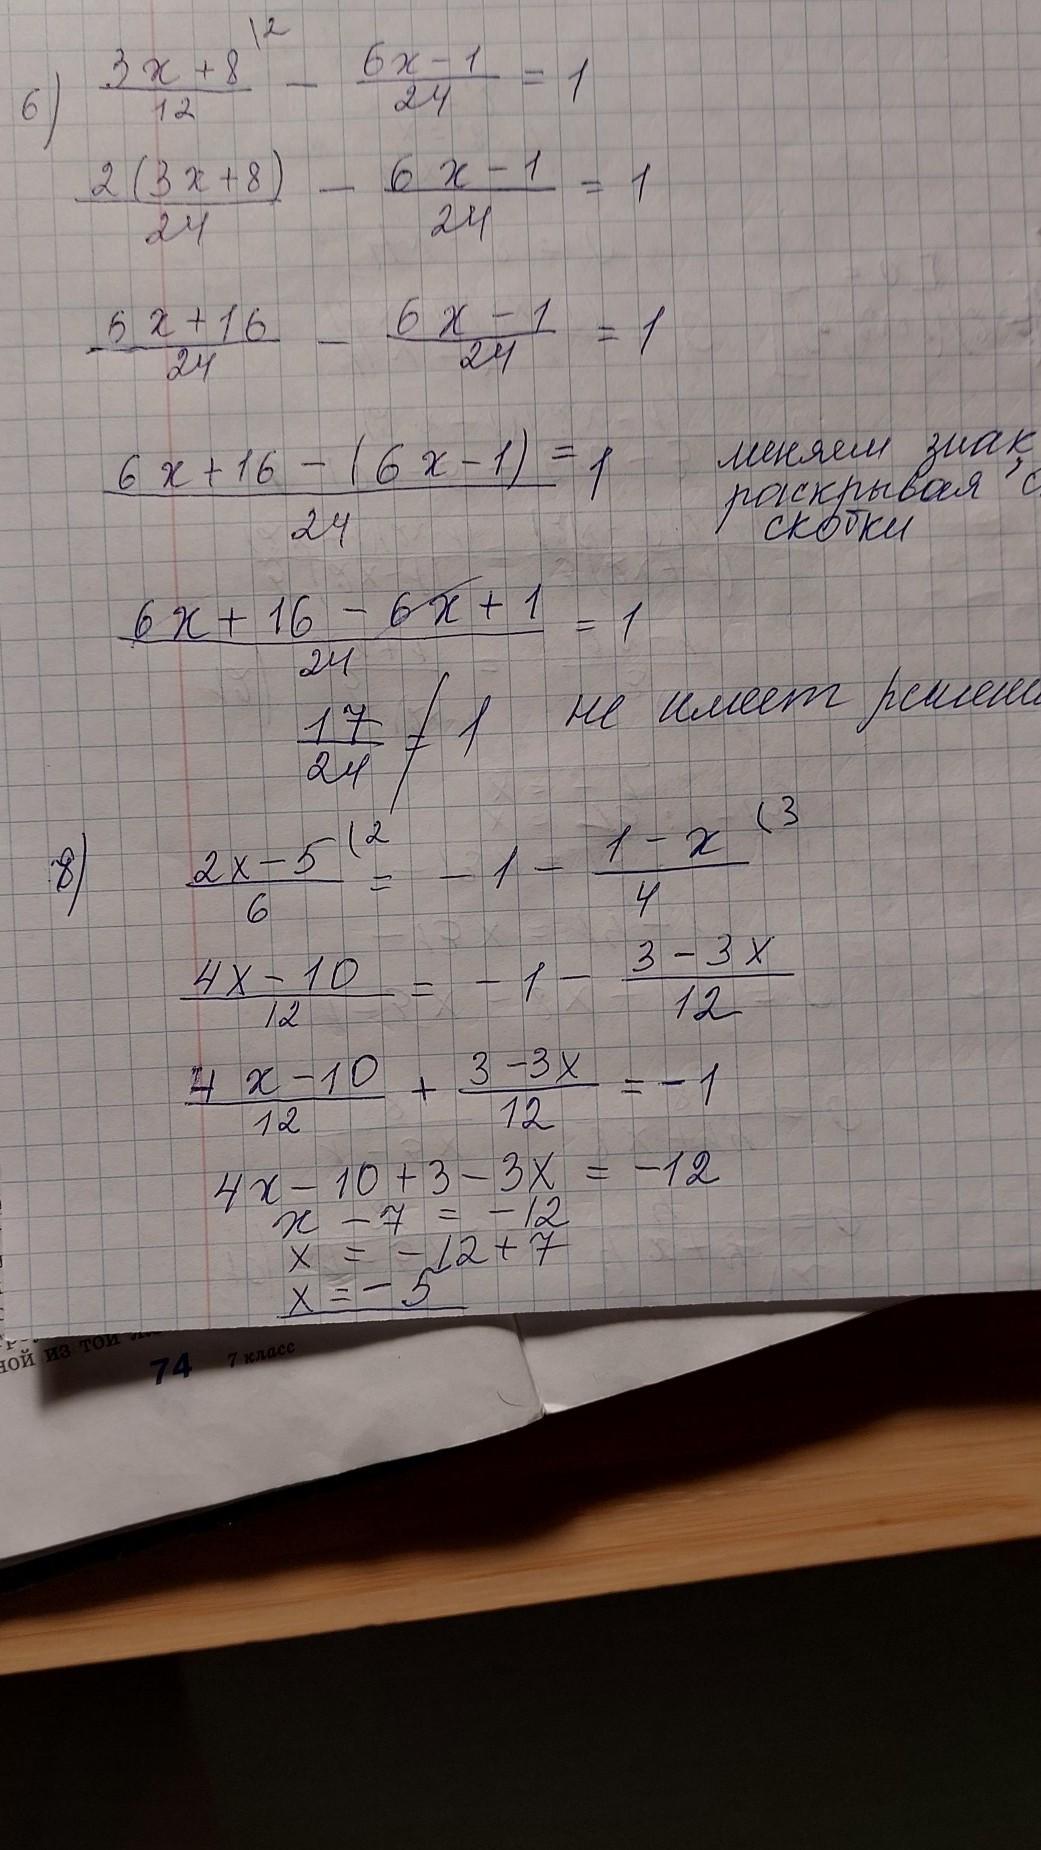 6) (3x+8)/12 \2 − (6x−1)/24 = 1
2(3x+8)/24 − (6x−1)/24 = 1
(6x+16)/24 − (6x−1)/24 = 1
(6x+16−(6x−1))/24 = 1 меняем знак,
раскрывая
скобки
(6x+16−6x+1)/24 = 1
17/24 ≠ 1 не имеет
8) (2x−5)/6 (2 = −1 − (1−x)/4 (3
(4x−10)/12 = −1 − (3−3x)/12
(4x−10)/12 + (3−3x)/12 = −1
4x−10+3−3x = −12
x −7 = −12
x = −12+7
x = −5
ной из той
74 7 класс